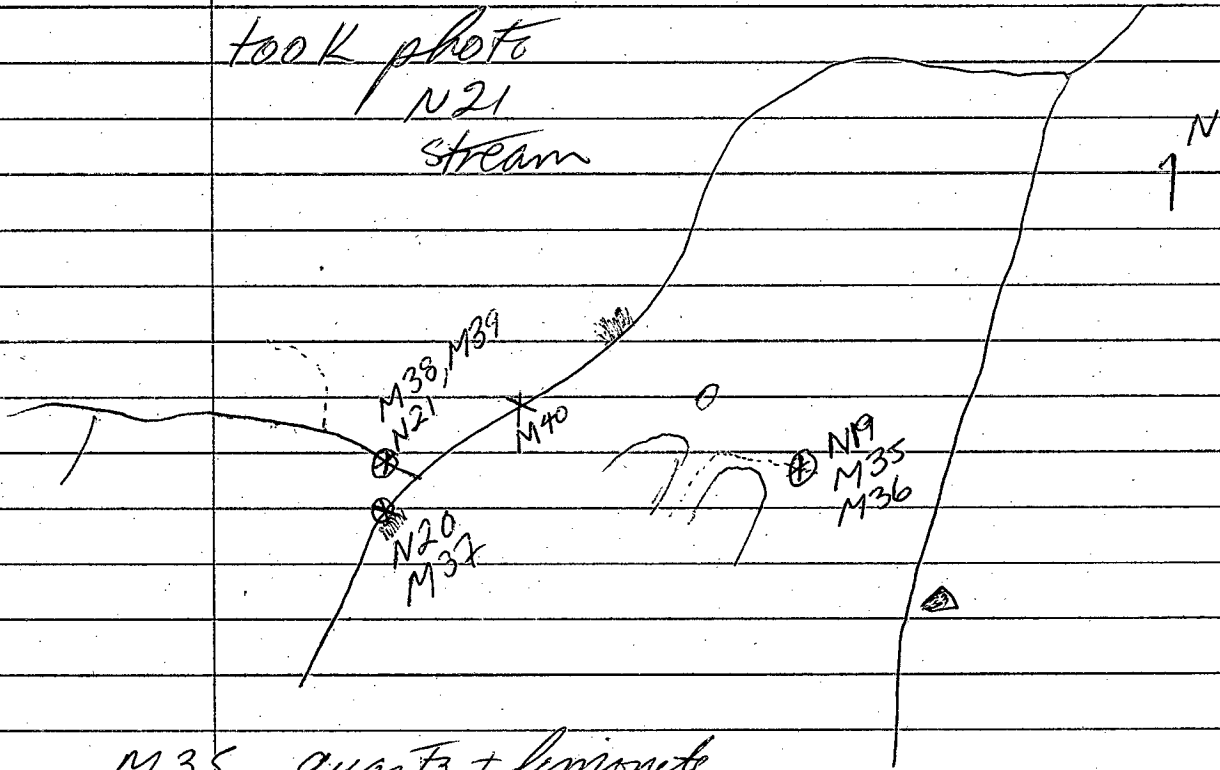 took photo
N21
stream
N
M38, M39
N21
M40
N19
M35
M36
N20
M37
M35 quartz + limonite